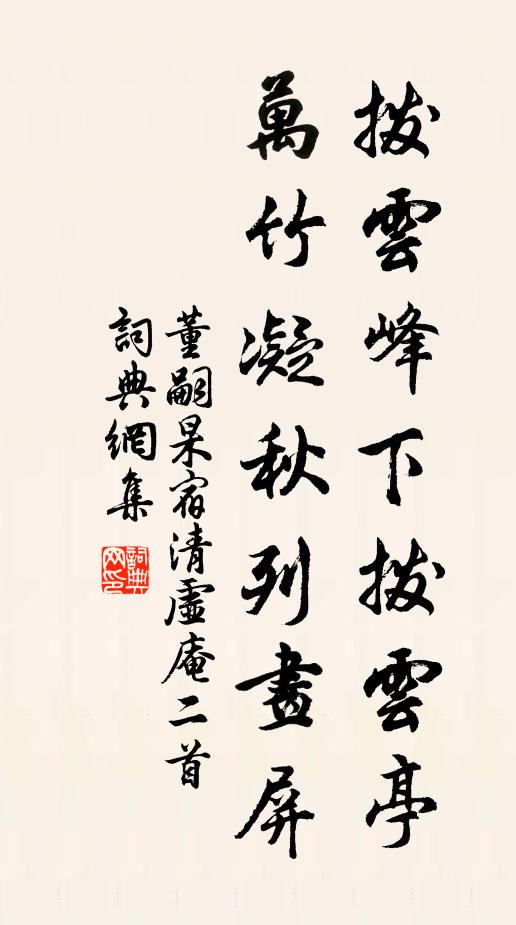 撥雲峰下撥雲亭
萬竹凝秋列畫屏
董嗣杲宿清虛庵二首
詞典網集
詞典網印